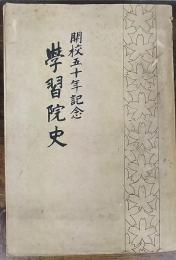 開校五十年記念
學習院史